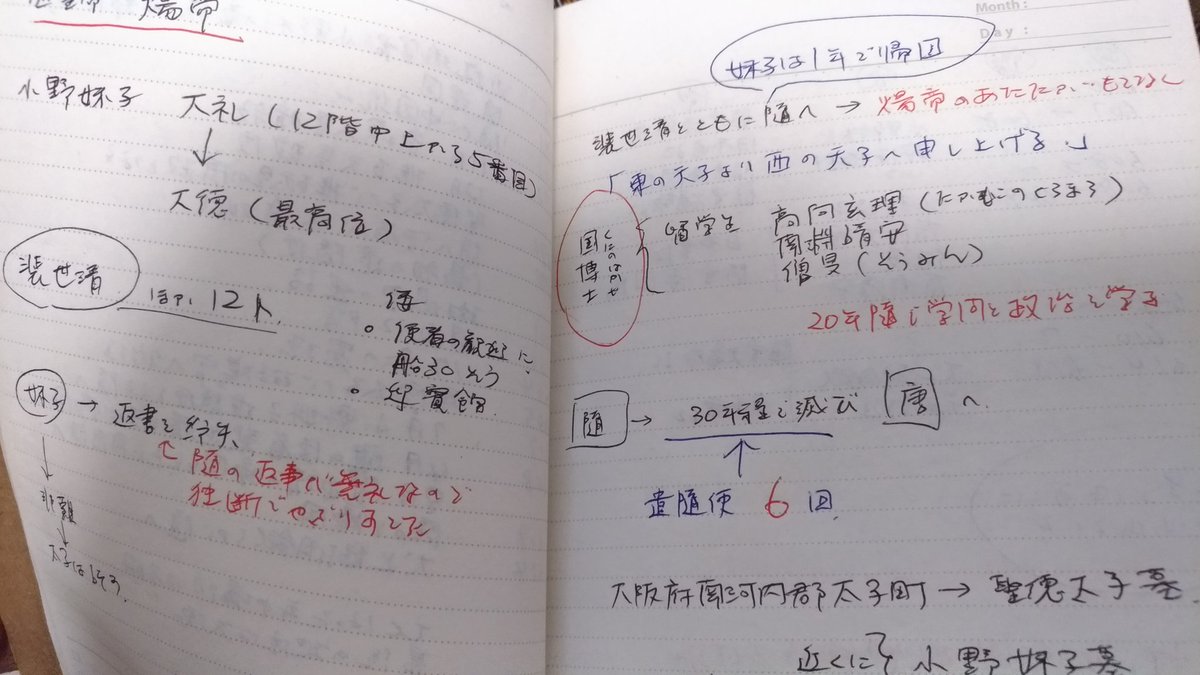 煬帝
小野妹子 大礼(12階中上から5番目)
↓
大徳(最高位)
裴世清 ほか12人
倭
・使者の歓迎に
船30そう
・迎賓館
妹子 → 返書を紛失
↑ 随の返事が無礼なので
独断でやぶりすてた
↓
非難
↓
太子は
Month:
Day:
妹子は1年で帰国
裴世清とともに随へ → 煬帝のあたたかいもてなし
「東の天子より西の天子へ申し上げる。」
国博士
くにのはかせ
留学生 高向玄理(たかむこのくろまろ)
南淵請安
僧旻(そうみん)
20年随で学問と政治を学ぶ
随 → 30年程で滅び 唐へ
↑
遣随使 6回
大阪府南河内郡太子町 → 聖徳太子墓
近くに 小野妹子墓